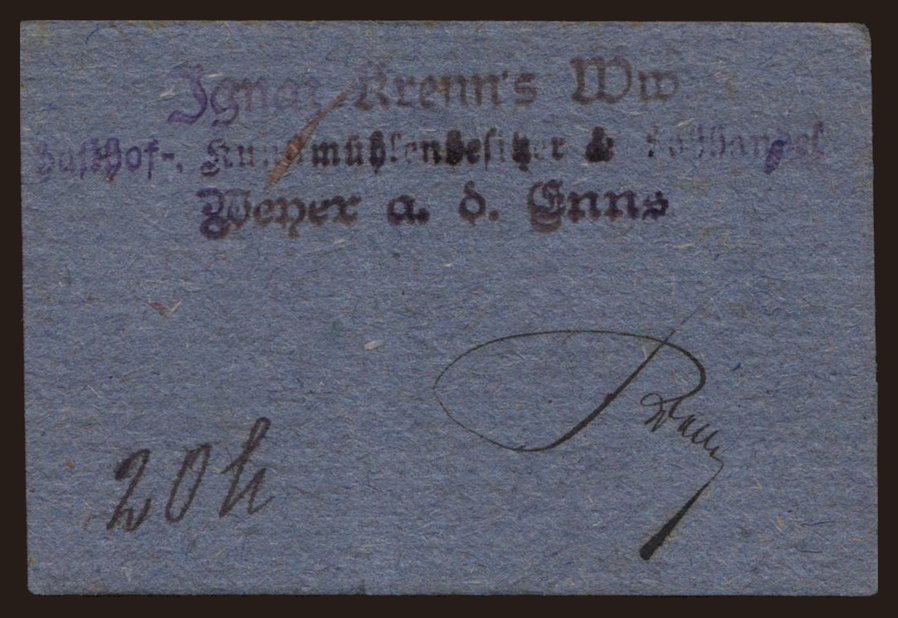 Ignaz Krenn's Ww
Gasthof-, Kunstmühlenbesitzer &
Weyer a. d. Enns
20 h
Krenn